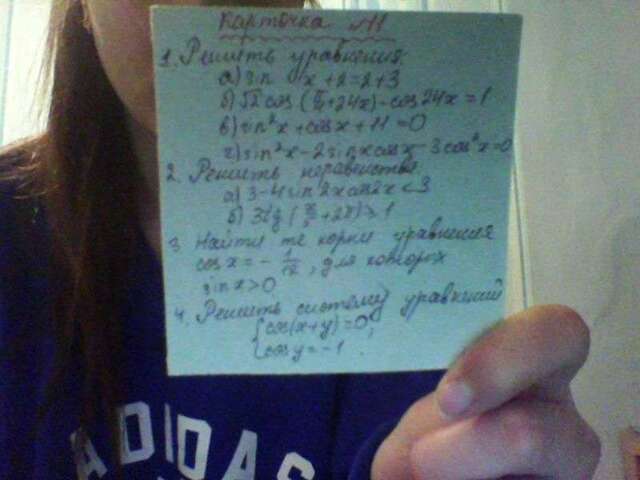 Карточка №11
1. Решить уравнения:
а) sin x + 2 = 2 + 3
б) √2 cos (π/8 + 24x) - cos 24x = 1
в) sin²x + cosx + 11 = 0
г) sin²x - 2sinxcosx - 3cos²x = 0
2. Решить неравенства
а) 3 - 4sin2xcos2x < 3
б) 3tg ( + 2x) ≥ 1
3 Найти те корни уравнения
cos x = - 1/√2, для которых
sin x > 0
4. Решить систему уравнений
{cos(x+y) = 0,
{cosy = -1.
ADIDAS